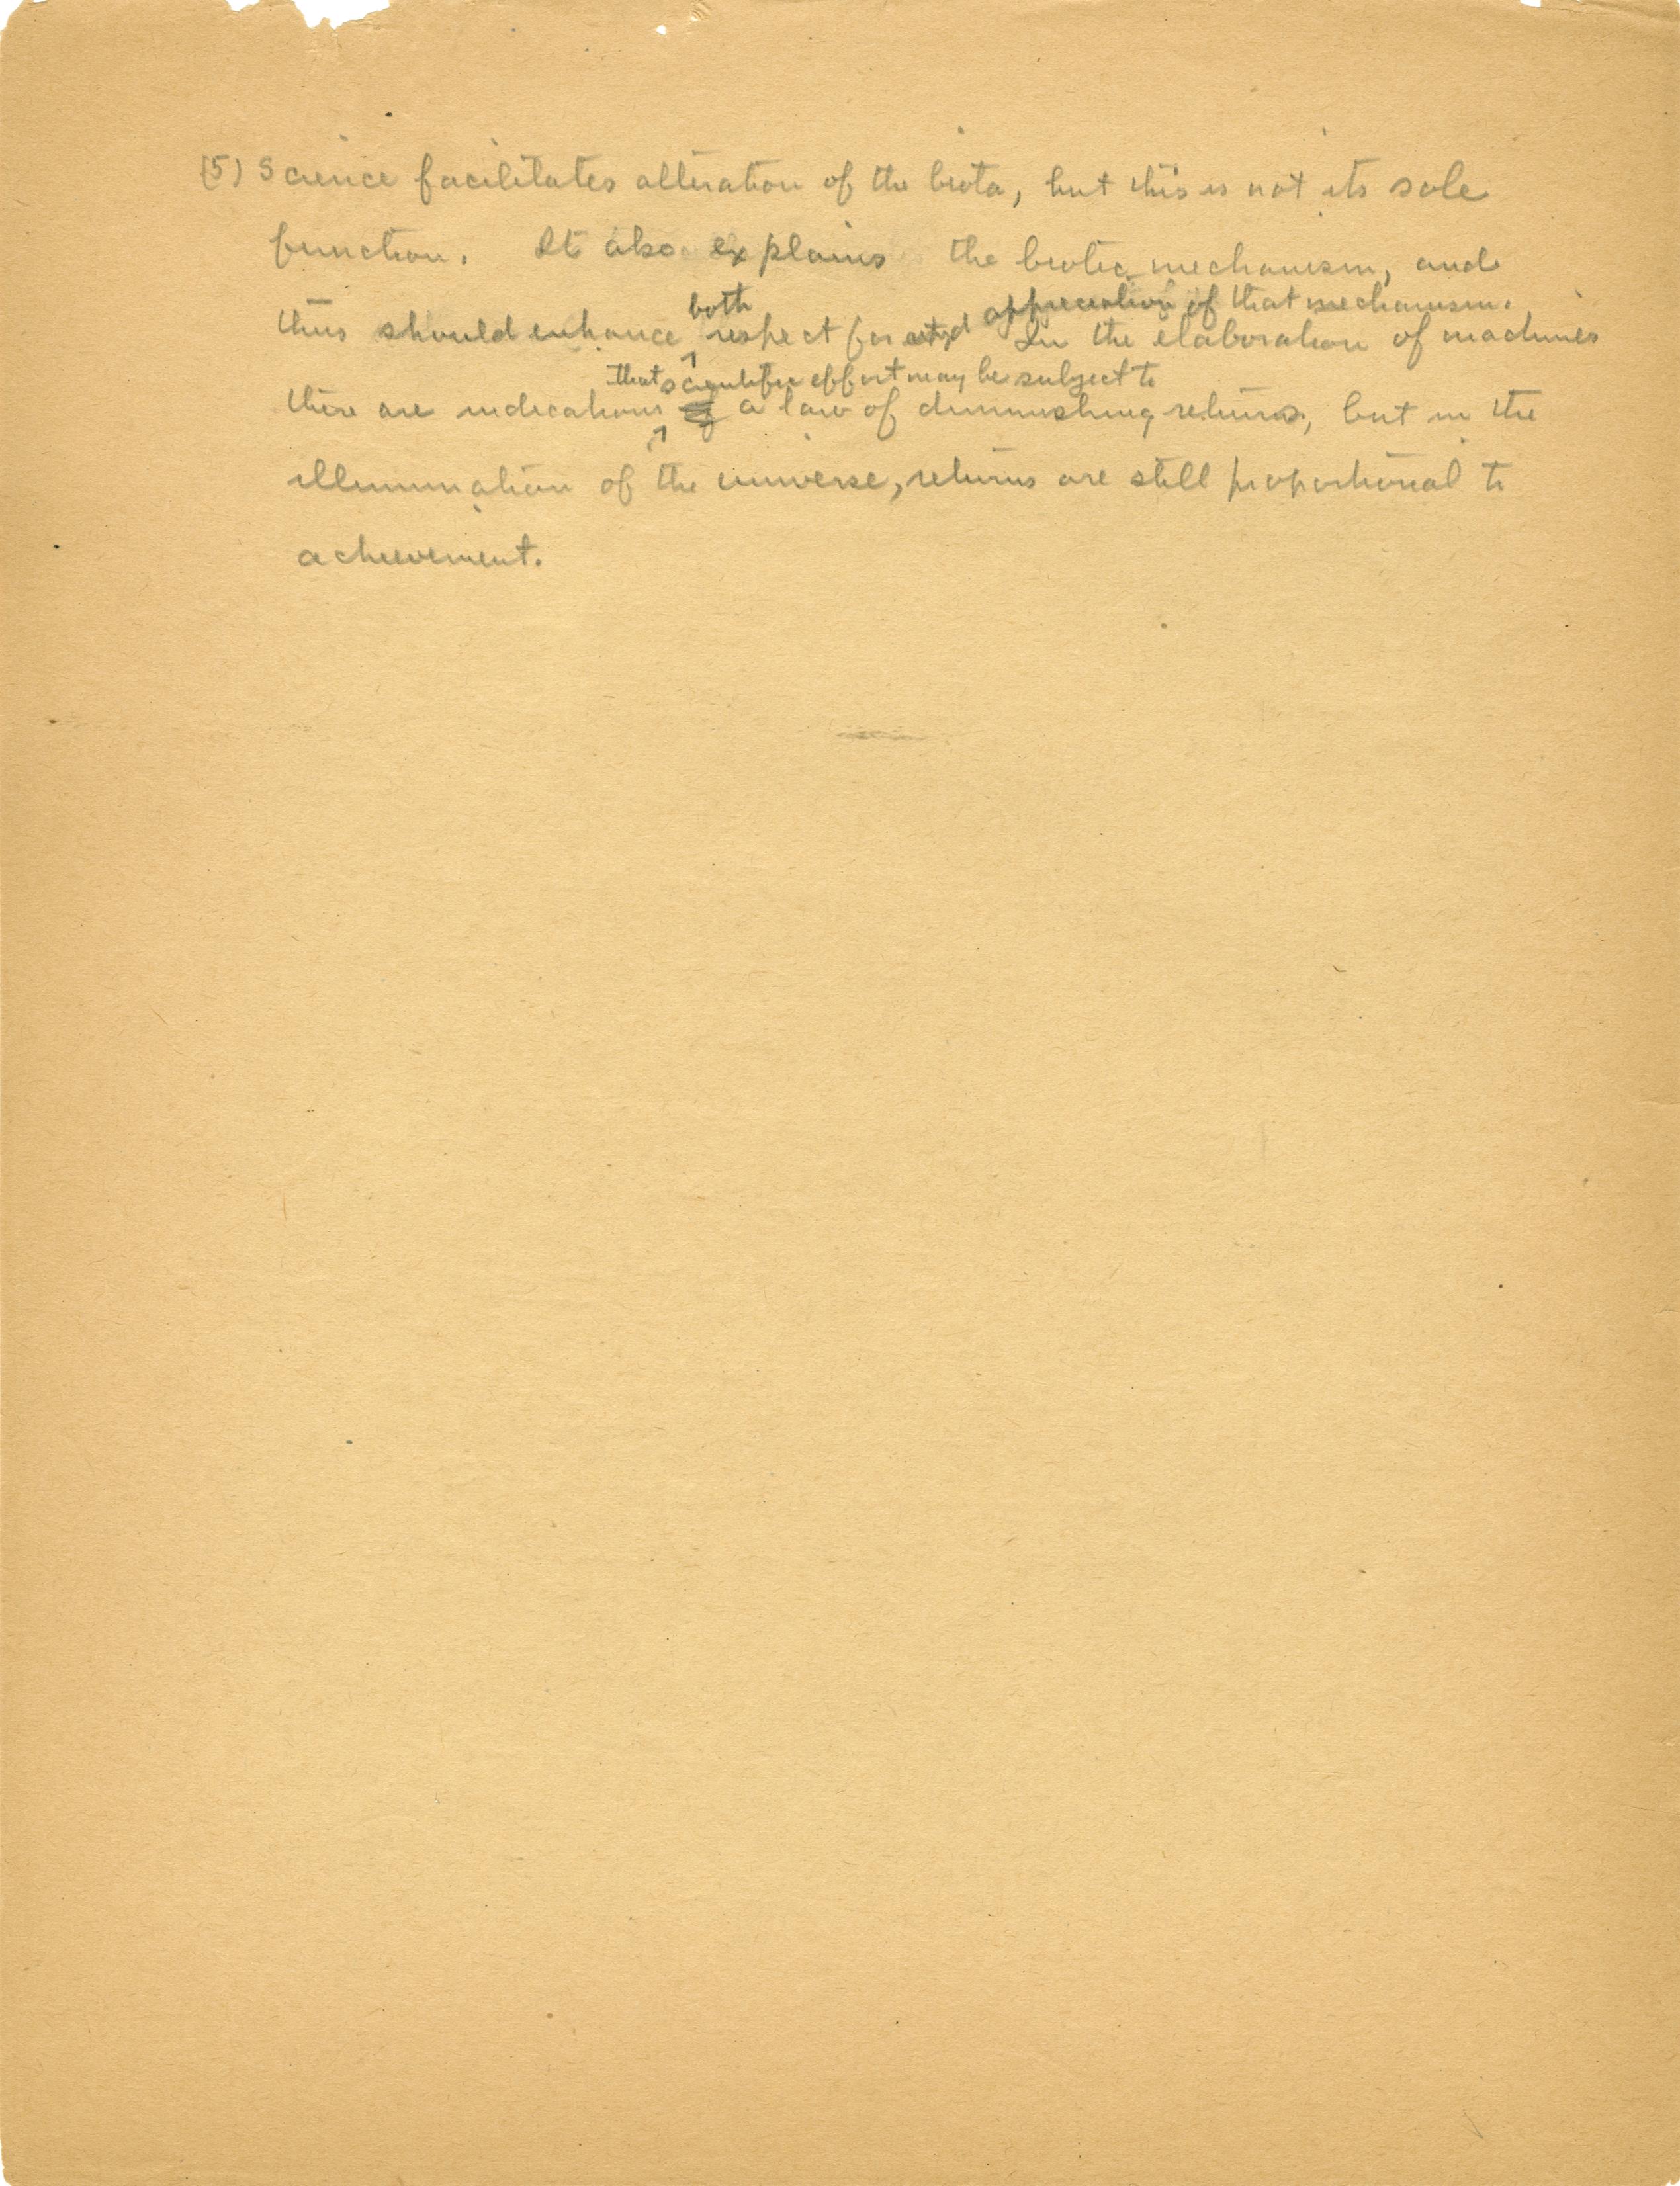 (5) Science facilitates alteration of the biota, but this is not its sole
function. It also explains the biotic mechanism, and
thus should enhance both respect for and appreciation of that mechanism. In the elaboration of machines
there are indications that scientific effort may be subject to a law of diminishing returns, but in the
illumination of the universe, returns are still proportional to
achievement.